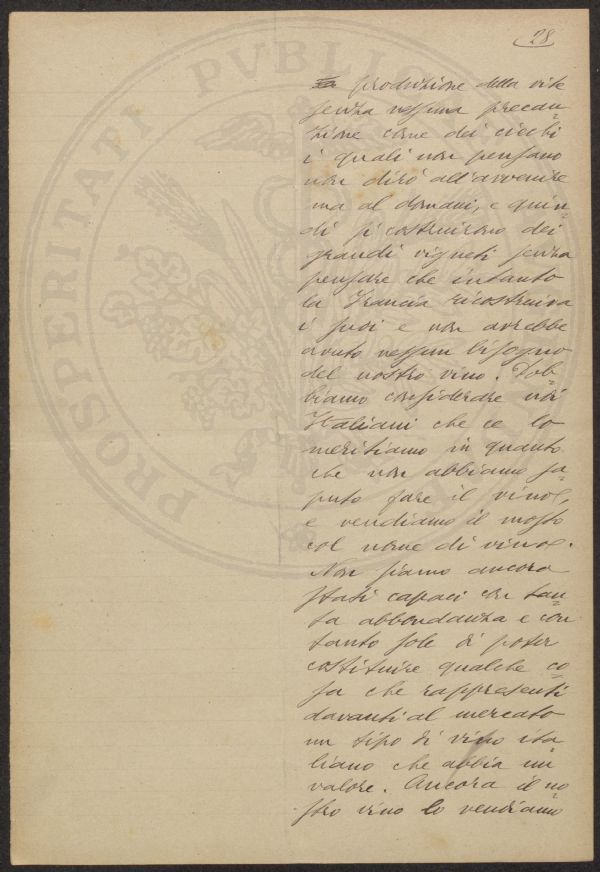 28
PROSPERITATI PVBLICAE
la produzione della vite
senza nessuna precau-
zione come dei ciechi
i quali non pensano
non dirò all'avvenire
ma al domani, e quin-
di si costruirono dei
grandi vigneti senza
pensare che intanto
la Francia ricostruiva
i suoi e non avrebbe
avuto nessun bisogno
del nostro vino. Dob-
biamo considerare noi
Italiani che ce lo
meritiamo in quanto
che non abbiamo sa-
puto fare il vino,
e vendiamo il mosto
col nome di vino.
Non siamo ancora
stati capaci con tan-
ta abbondanza e con
tanto sole di poter
costituire qualche co-
sa che rappresenti
davanti al mercato
un tipo di vino ita
liano che abbia un
valore. Ancora il no-
stro vino lo vendiamo